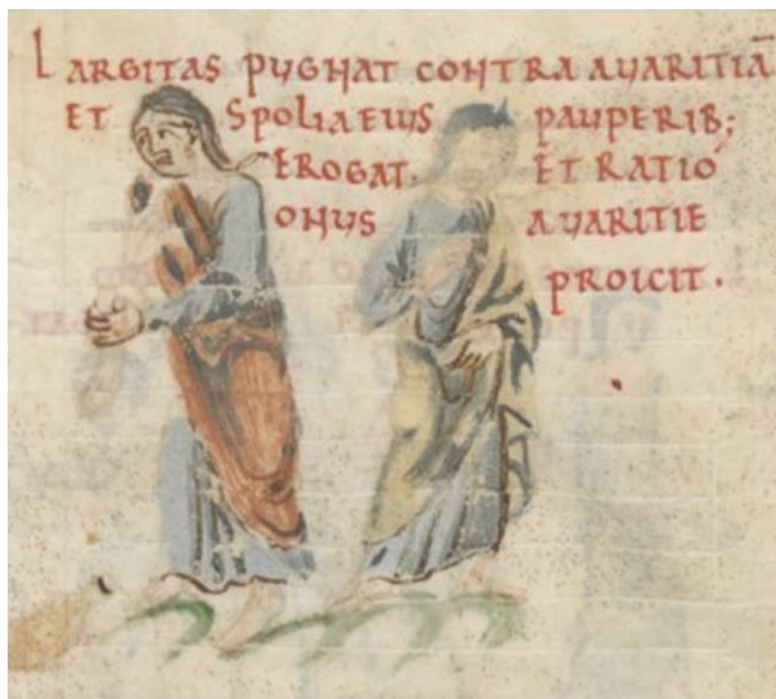 LARGITAS PUGNAT CONTRA AVARITIĀ
ET SPOLIA EIUS PAUPERIB;
EROGAT. ET RATIO
ONUS AVARITIE
PROICIT.